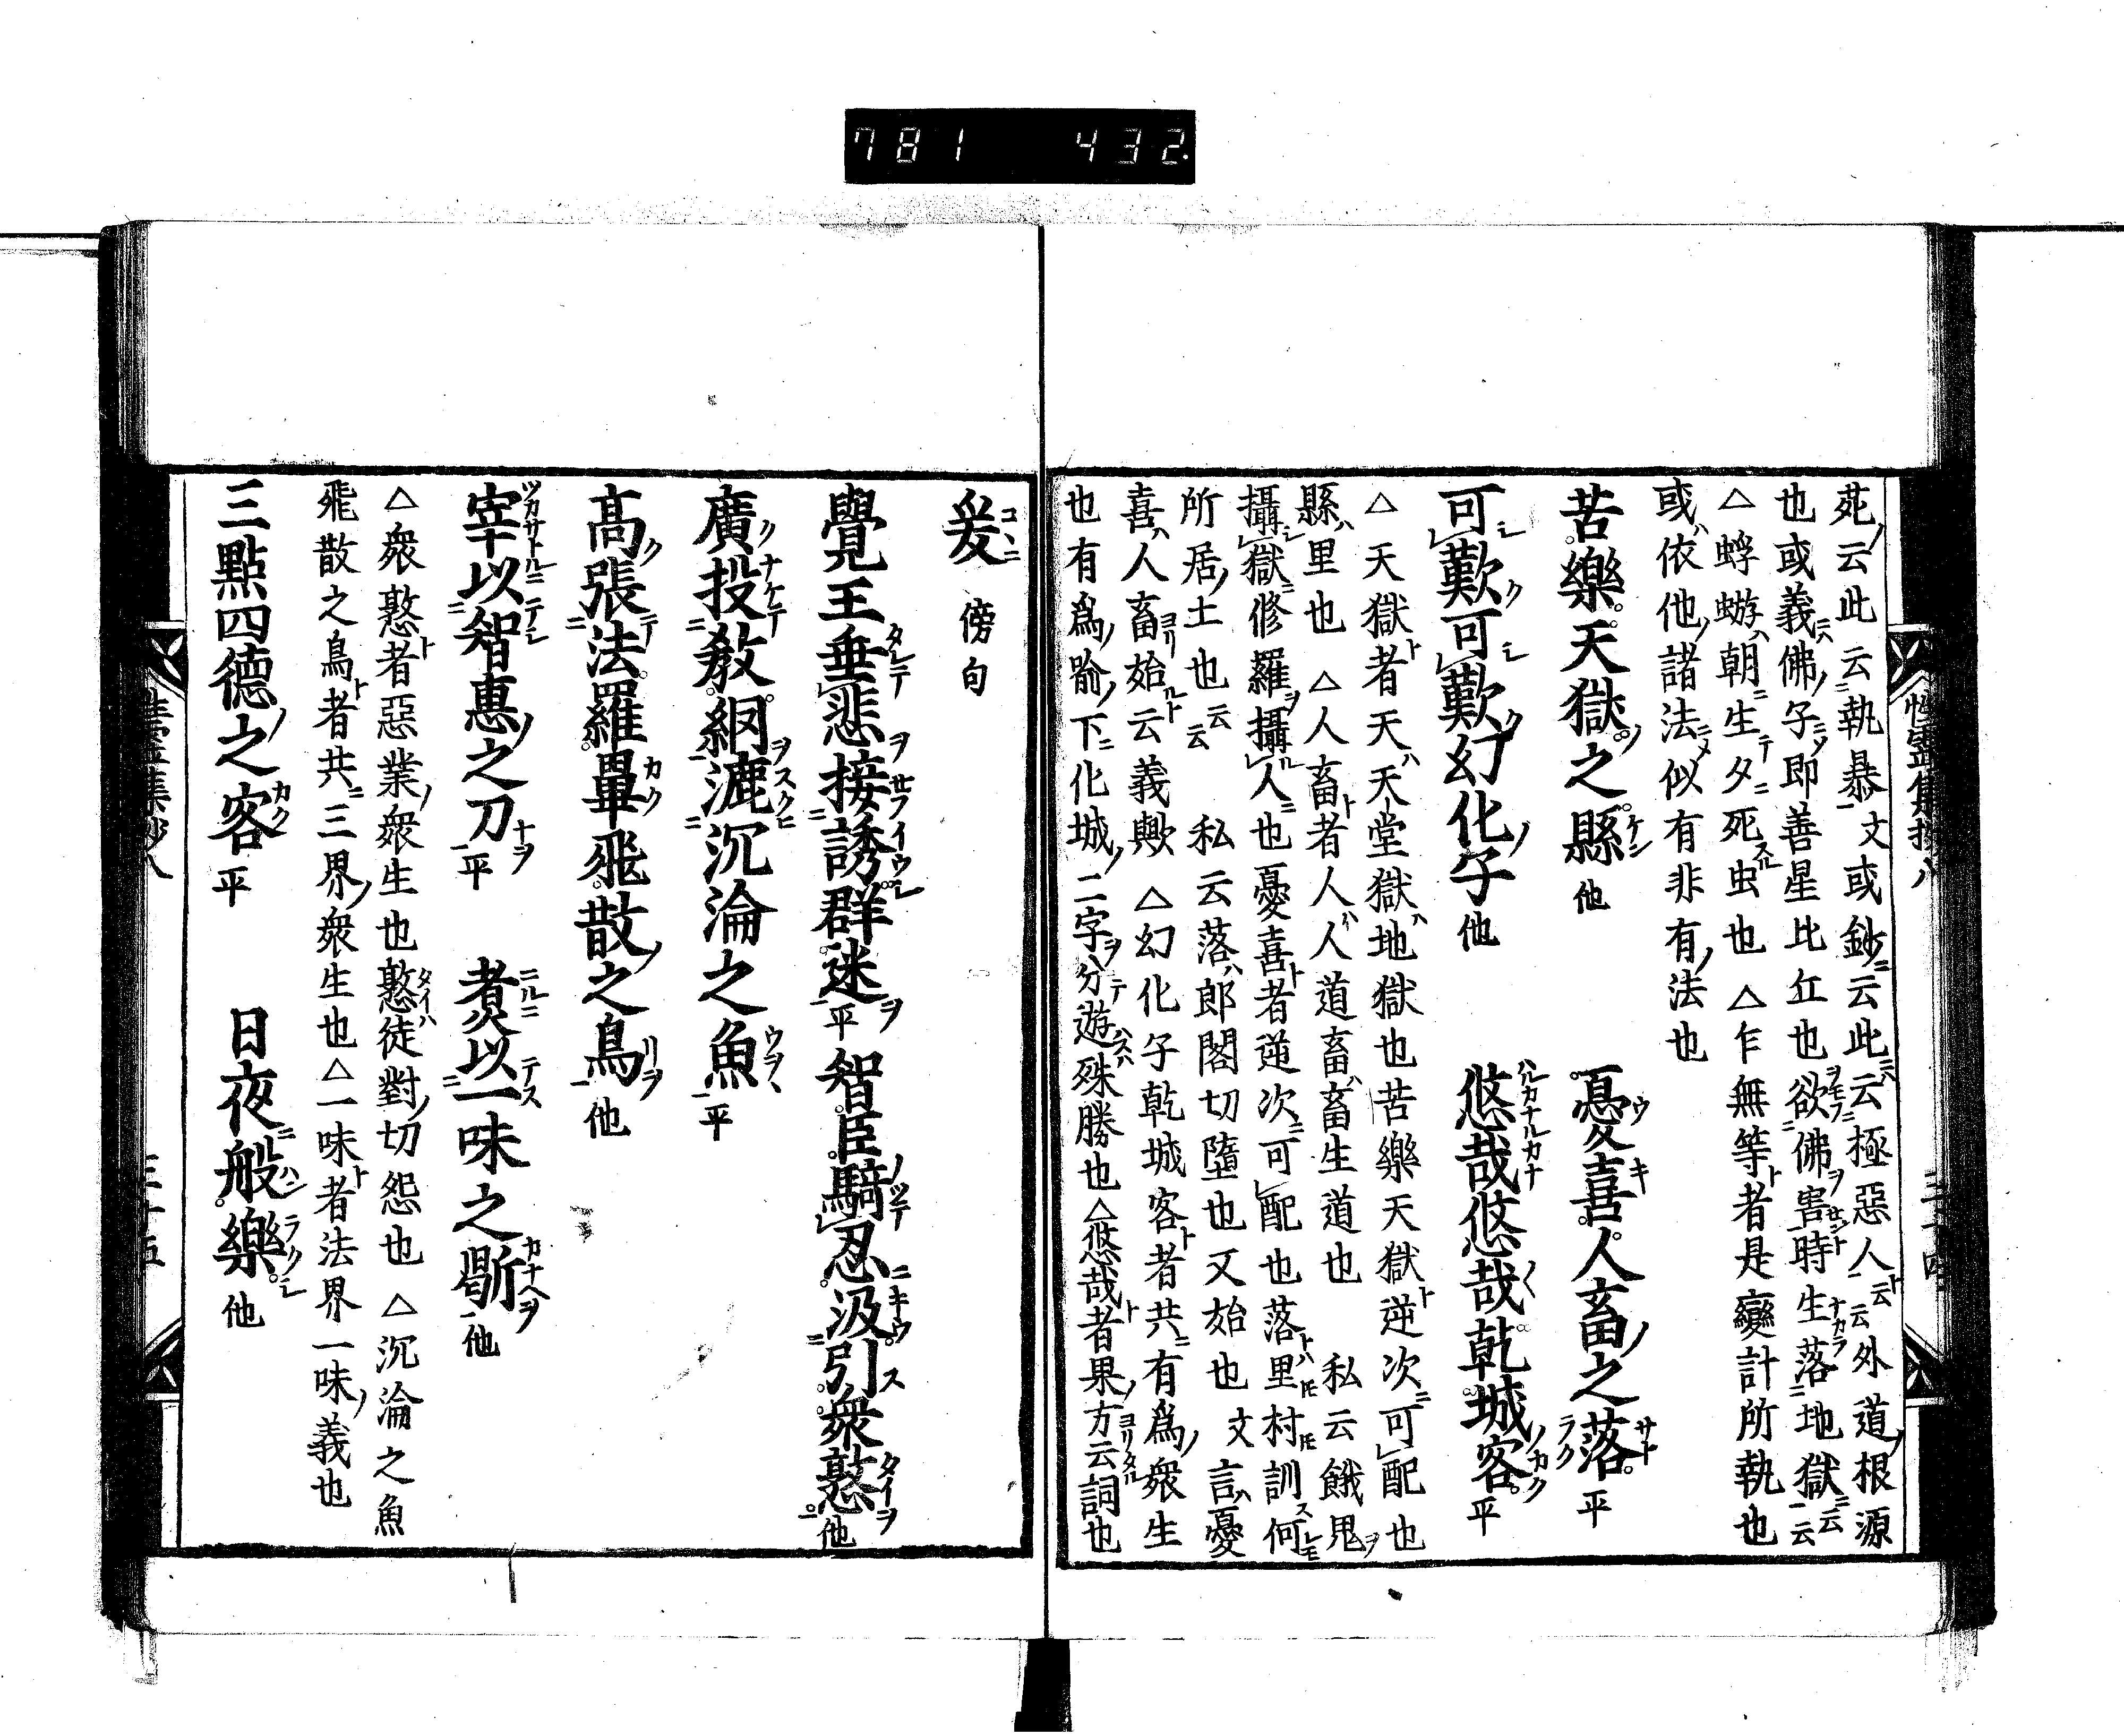 781 432.
苑云此云執暴文或鈔云此云極惡人云云外道根源
也或義佛子即善星比丘也欲佛害時生落地獄云云
△蜉蝣朝生夕死虫也△乍無等者是變計所執也
或依他諸法似有非有法也
苦樂天獄之縣他 憂喜人畜之落平
可歎可歎幻化子他 悠哉悠哉乾城客平
△天獄者天天堂獄地獄也苦樂天獄逆次可配也
縣里也△人畜者人人道畜畜生道也 私云餓鬼
攝獄修羅攝人也憂喜者逆次可配也落里村訓何
所居土也云云 私云落郎閣切墮也又始也文言憂
喜人畜始云義歟△幻化子乾城客者共有爲衆生
也有爲喻下化城二字分遊殊勝也△悠哉者果方云詞也
爰 傍句
覺王垂悲接誘群迷平 智臣騎忍汲引衆憝他
廣投教網漉沉淪之魚平
高張法羅畢飛散之鳥他
宰以智惠之刀平 煮以一味之鬵他
△衆憝者惡業衆生也憝徒對切怨也△沉淪之魚
飛散之鳥者共三界衆生也△一味者法界一味義也
三點四德之客平 日夜般樂他